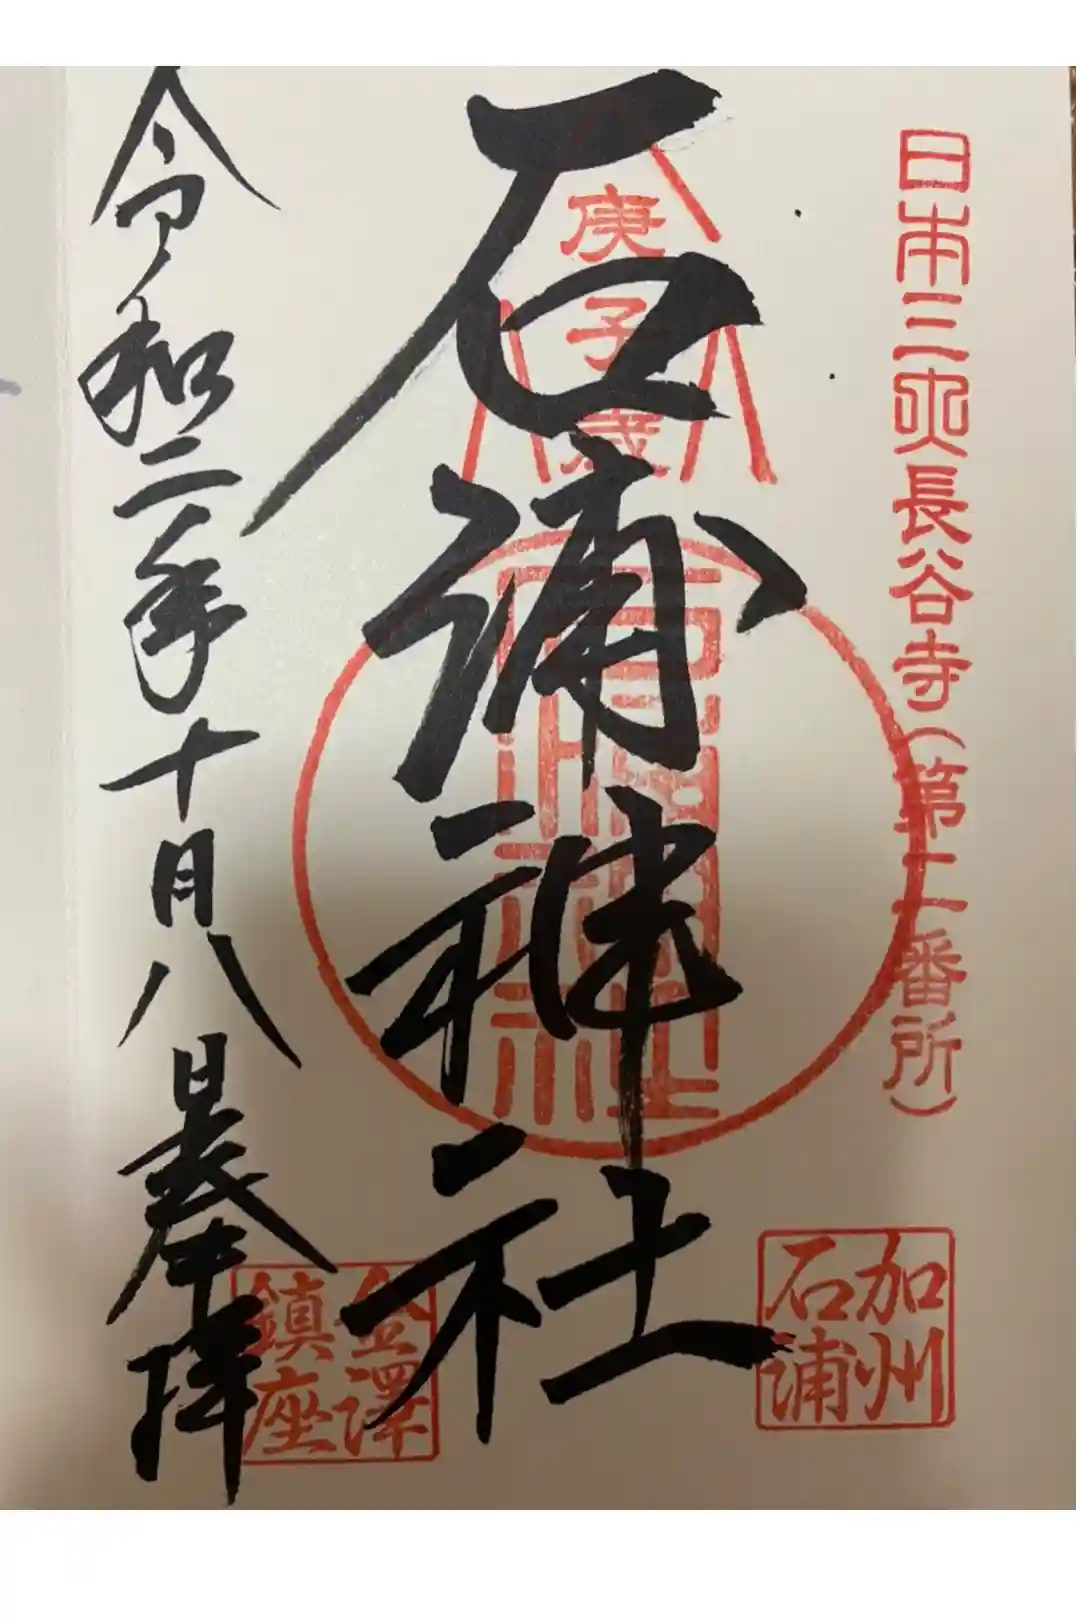 日本三所長谷寺(第二番所)
加州
石浦
庚子歳
石浦神社
令和二年十月八日奉拝
金澤
鎮座